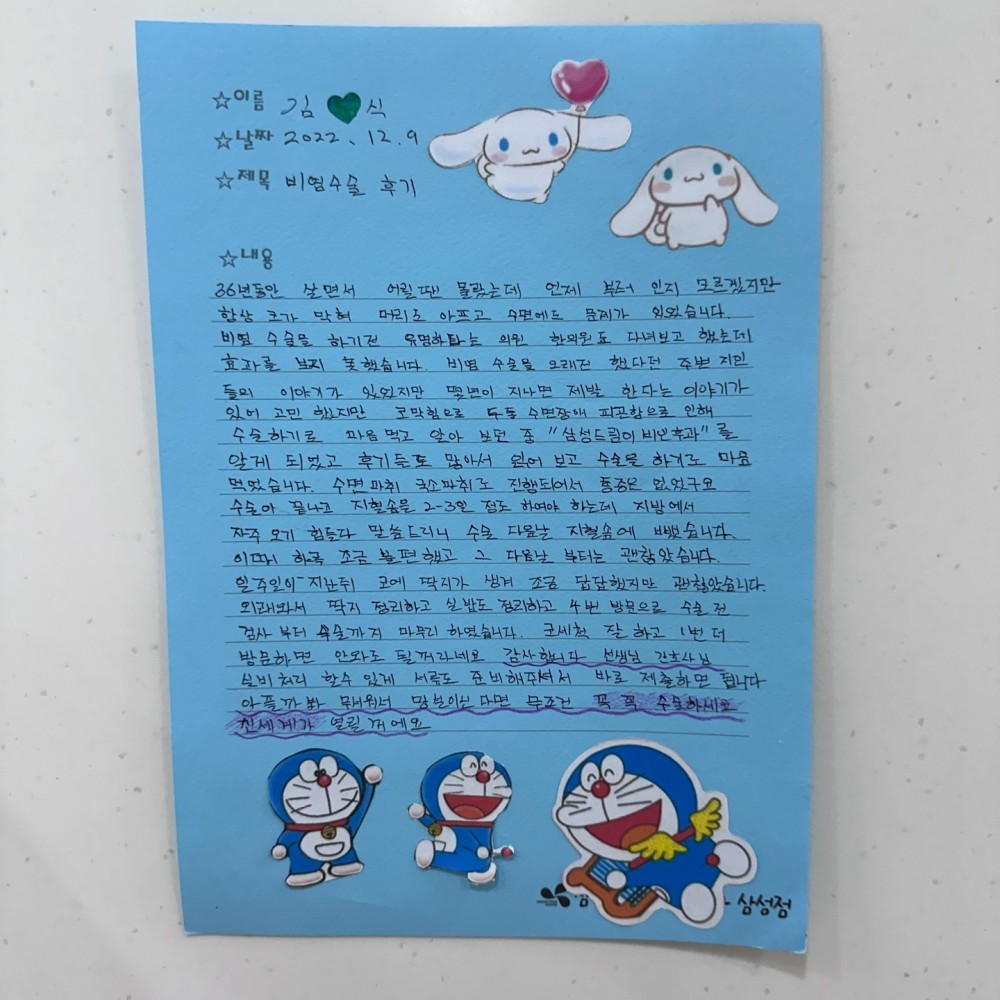 ☆이름 김 💚 식
☆날짜 2022. 12. 9
☆제목 비염수술 후기
☆내용
36년동안 살면서 어릴땐 몰랐는데 언제 부터 인지 모르겠지만
항상 코가 막혀 머리도 아프고 수면에도 문제가 있었습니다.
비염 수술을 하기전 유명하다는 의원 한의원도 다녀보고 했는데
효과를 보지 못했습니다. 비염 수술을 오래전 했다던 주변 지인
들의 이야기가 있었지만 몇년이 지나면 재발 한다는 이야기가
있어 고민 했지만 코막힘으로 두통 수면장애 피곤함으로 인해
수술하기로 마음먹고 알아 보던 중 "삼성드림이비인후과"를
알게 되었고 후기들도 많아서 읽어 보고 수술을 하기로 마음
먹었습니다. 수면마취 국소마취도 진행되어서 통증은 없었구요
수술이 끝나고 지혈솜을 2-3일 정도 하여야 하는데 지방에서
자주 오기 힘들다 말씀드리니 수술 다음날 지혈솜에 뺐습니다.
이때 하루 조금 불편했고 그 다음날 부터는 괜찮았습니다.
일주일이 지난뒤 코에 딱지가 생겨 조금 답답했지만 괜찮았습니다.
외래와서 딱지 정리하고 실밥도 정리하고 4번 방문으로 수술 전
검사 부터 수술까지 마무리 하였습니다. 코세척 잘 하고 1번 더
방문하면 안와도 될꺼라네요 감사합니다 선생님 간호사님
실비처리 할수 있게 서류도 준비해주셔서 바로 제출하면 됩니다
아플까봐 무서워서 망설이신다면 무조건 꼭 꼭 수술하세요
신세계가 열릴 거에요
삼성점